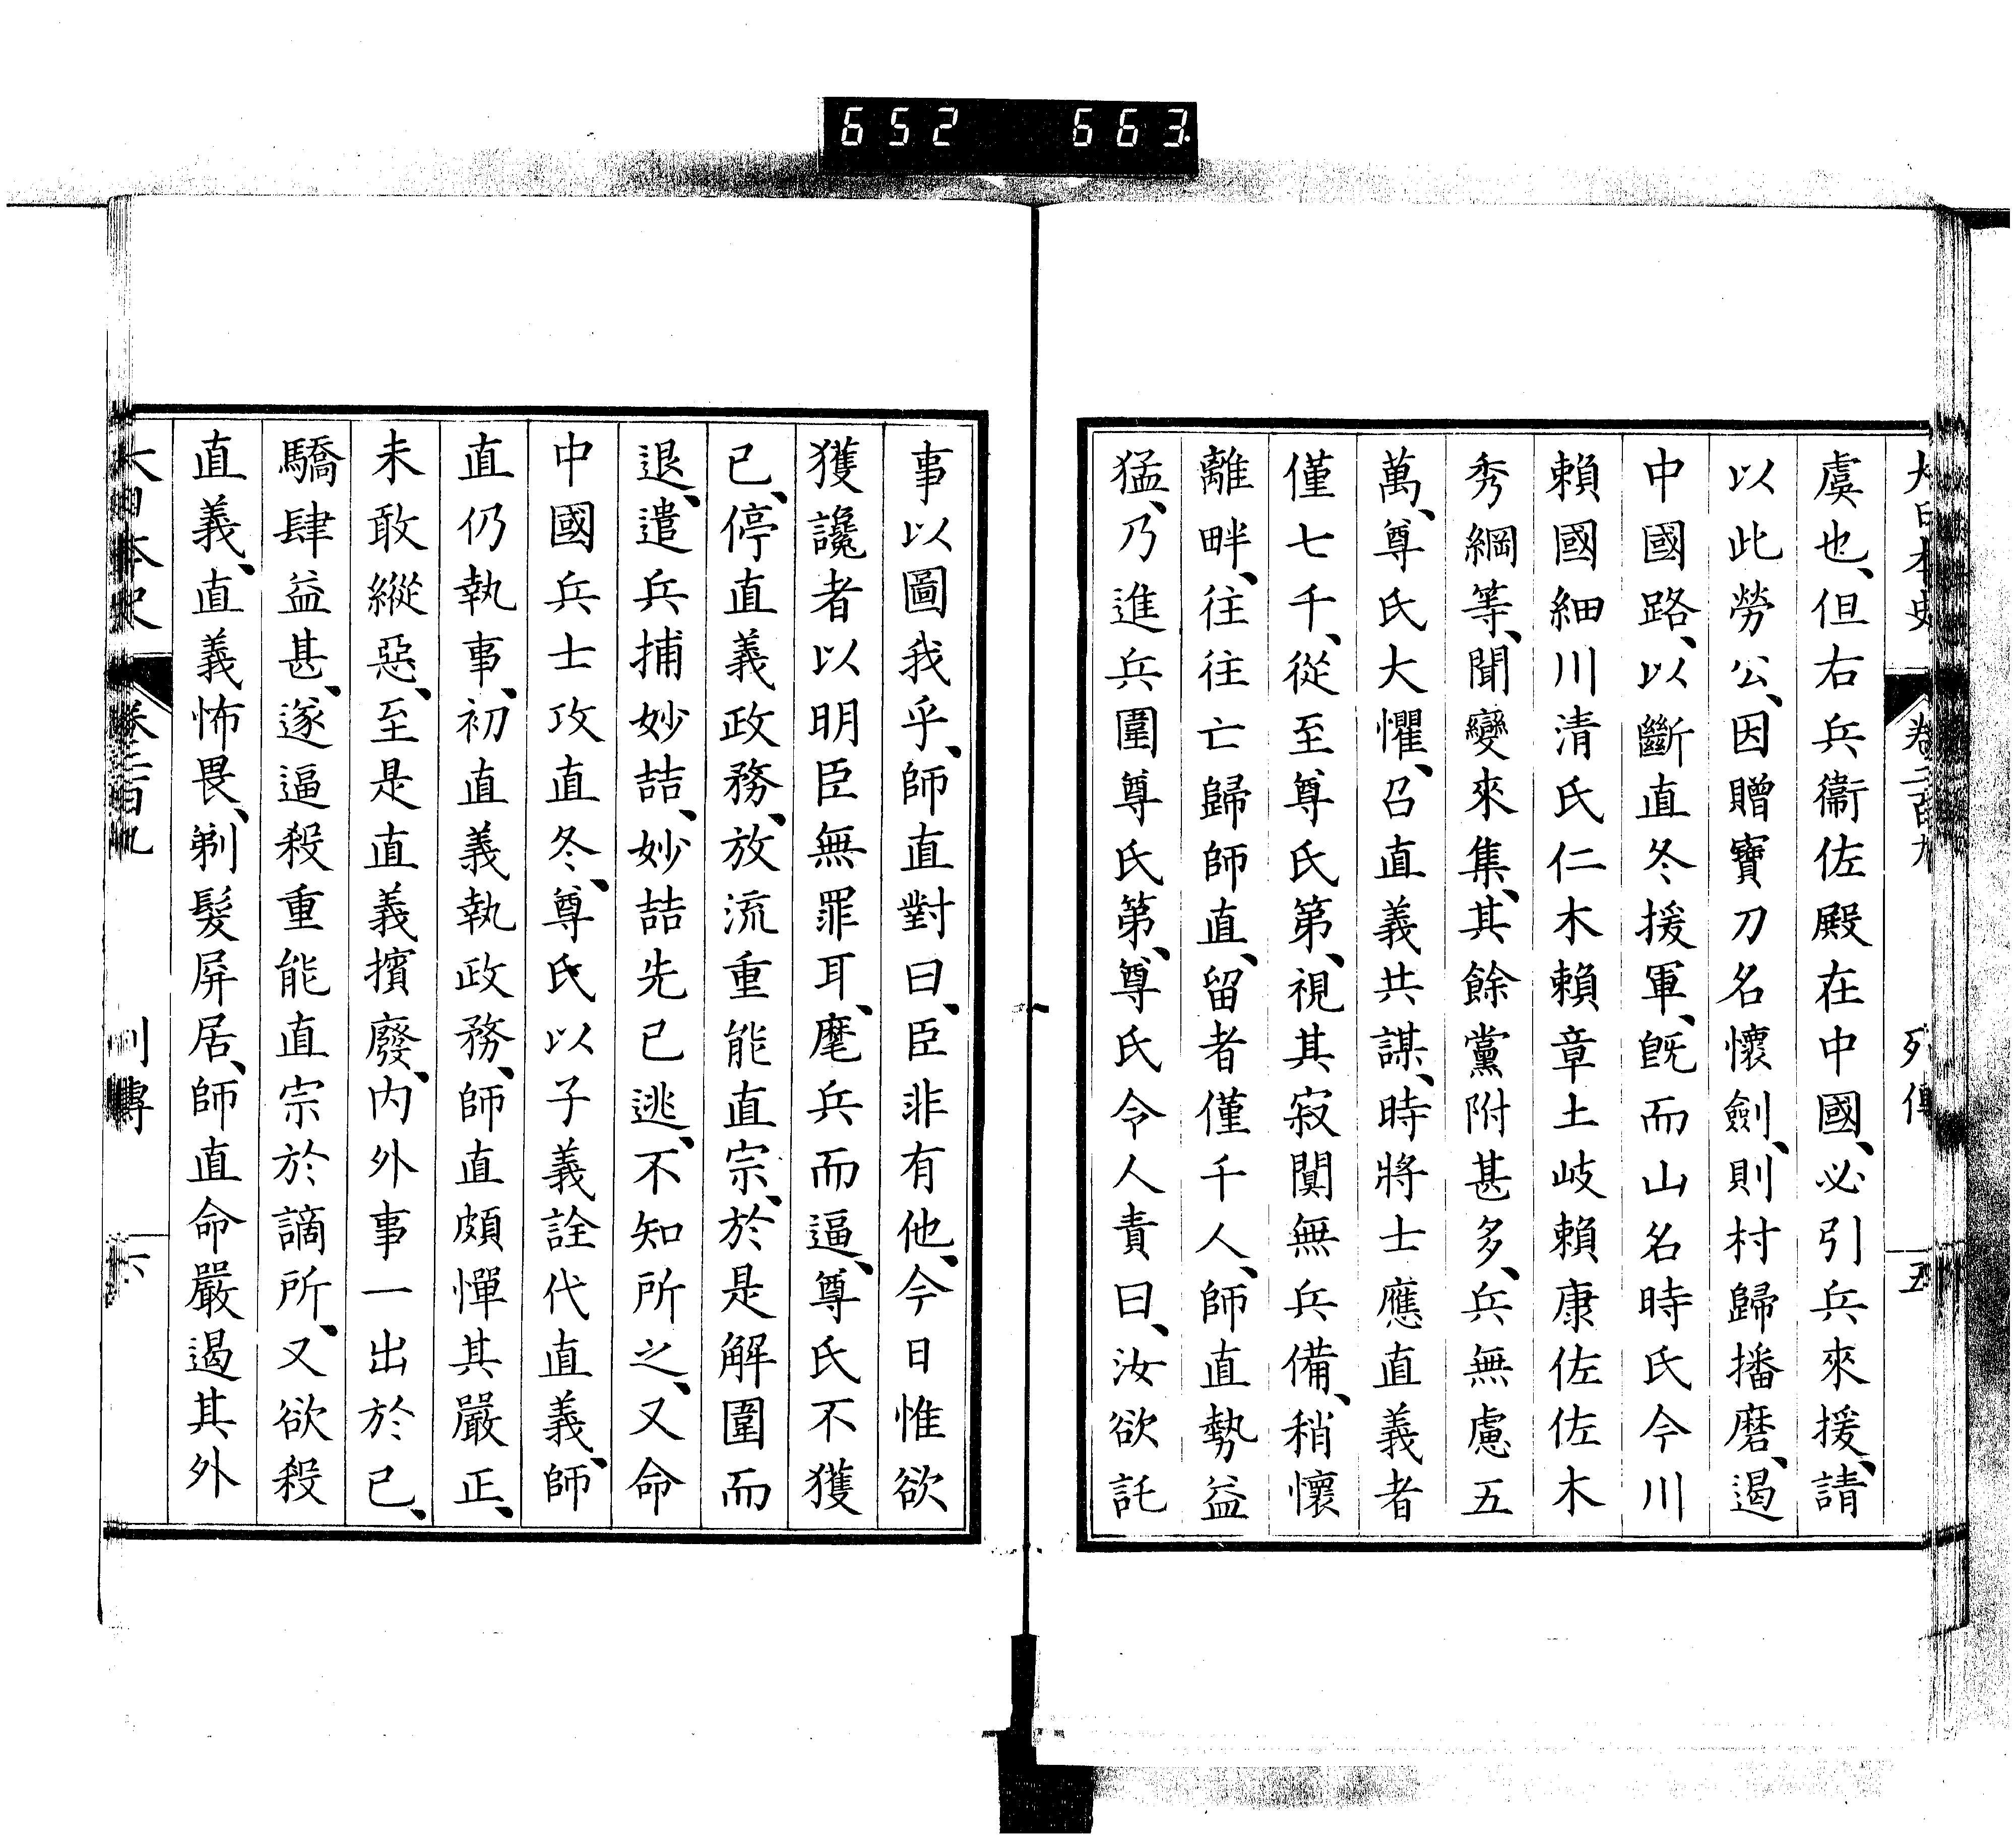 652 663
大日本史 卷二百九 列傳 五
虞也、但右兵衞佐殿在中國、必引兵來援、請
以此勞公、因贈寶刀名懷劍、則村歸播磨、遏
中國路、以斷直冬援軍、旣而山名時氏今川
賴國細川清氏仁木賴章土岐賴康佐佐木
秀綱等、聞變來集、其餘黨附甚多、兵無慮五
萬、尊氏大懼、召直義共謀、時將士應直義者
僅七千、從至尊氏第、視其寂闃無兵備、稍懷
離畔、往往亡歸師直、留者僅千人、師直勢益
猛、乃進兵圍尊氏第、尊氏令人責曰、汝欲託
事以圖我乎、師直對曰、臣非有他、今日惟欲
獲讒者以明臣無罪耳、麾兵而逼、尊氏不獲
已、停直義政務、放流重能直宗、於是解圍而
退、遣兵捕妙喆、妙喆先已逃、不知所之、又命
中國兵士攻直冬、尊氏以子義詮代直義、師
直仍執事、初直義執政務、師直頗憚其嚴正、
未敢縱惡、至是直義擯廢、內外事一出於已、
驕肆益甚、遂逼殺重能直宗於謫所、又欲殺
直義、直義怖畏、剃髮屛居、師直命嚴遏其外
大日本史 卷二百九 列傳 六